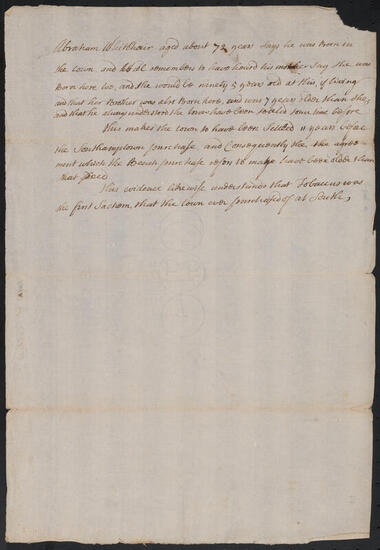 Abraham Whithear aged about 72 year Says he was Born in
the town, and well remembers to have heard his mother Say She was
Born here too, and She would be ninety 5 year old at this, if Living
and that her Brother was also Born here, and was 7 year older than She,
and that he always understood the town have been Settled Some time before
This makes the town to have been Settled 11 year before
the Southampton purchase and Consequently the agree-
ment which the Beach purchase refers to mayhave been older than
that Deed
This evidence likewise understands that Tobaccus was
the first Sachem that the town ever purchased of at South,